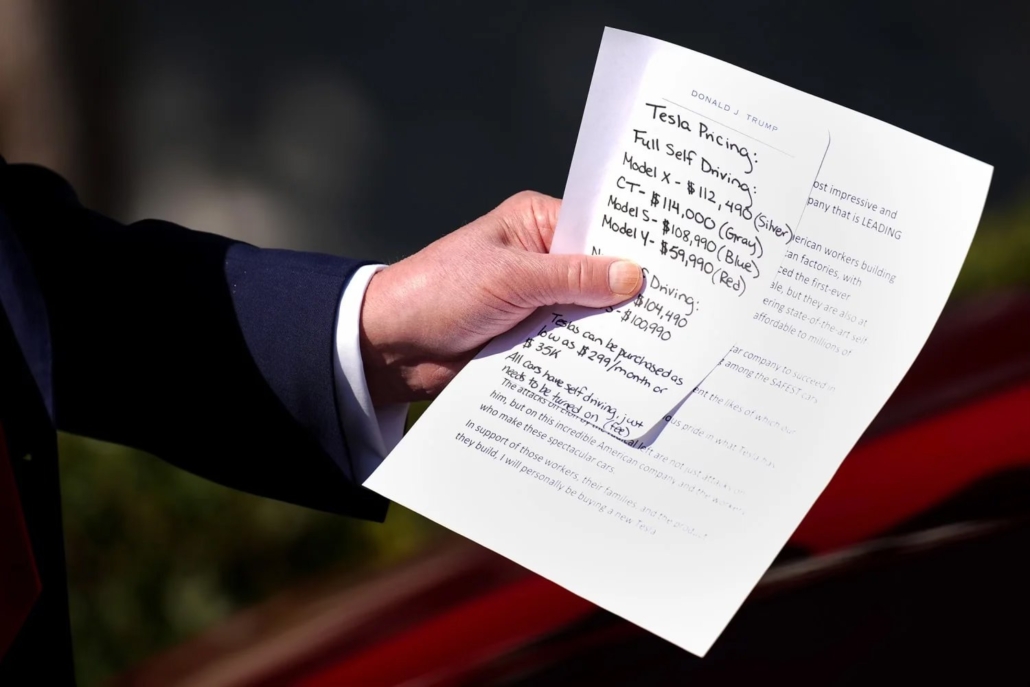 DONALD J. TRUMP
Tesla Pricing:
Full Self Driving:
Model X - $112,490 (Silver)
CT - $114,000 (Gray)
Model S - $108,990 (Blue)
Model Y - $59,990 (Red)
Driving:
$104,490
- $100,990
Teslas can be purchased as
low as $299/month or
$35K
All cars have self driving, just
needs to be turned on (fee)
ost impressive and
pany that is LEADING
erican workers building
can factories, with
ced the first-ever
ale, but they are also at
ering state-of-the-art self
affordable to millions of
car company to succeed in
among the SAFEST cars
ent the likes of which our
ous pride in what Tesla has
The attacks on left are not just attacks on
him, but on this incredible American company and the workers
who make these spectacular cars.
In support of those workers, their families, and the product
they build, I will personally be buying a new Tesla